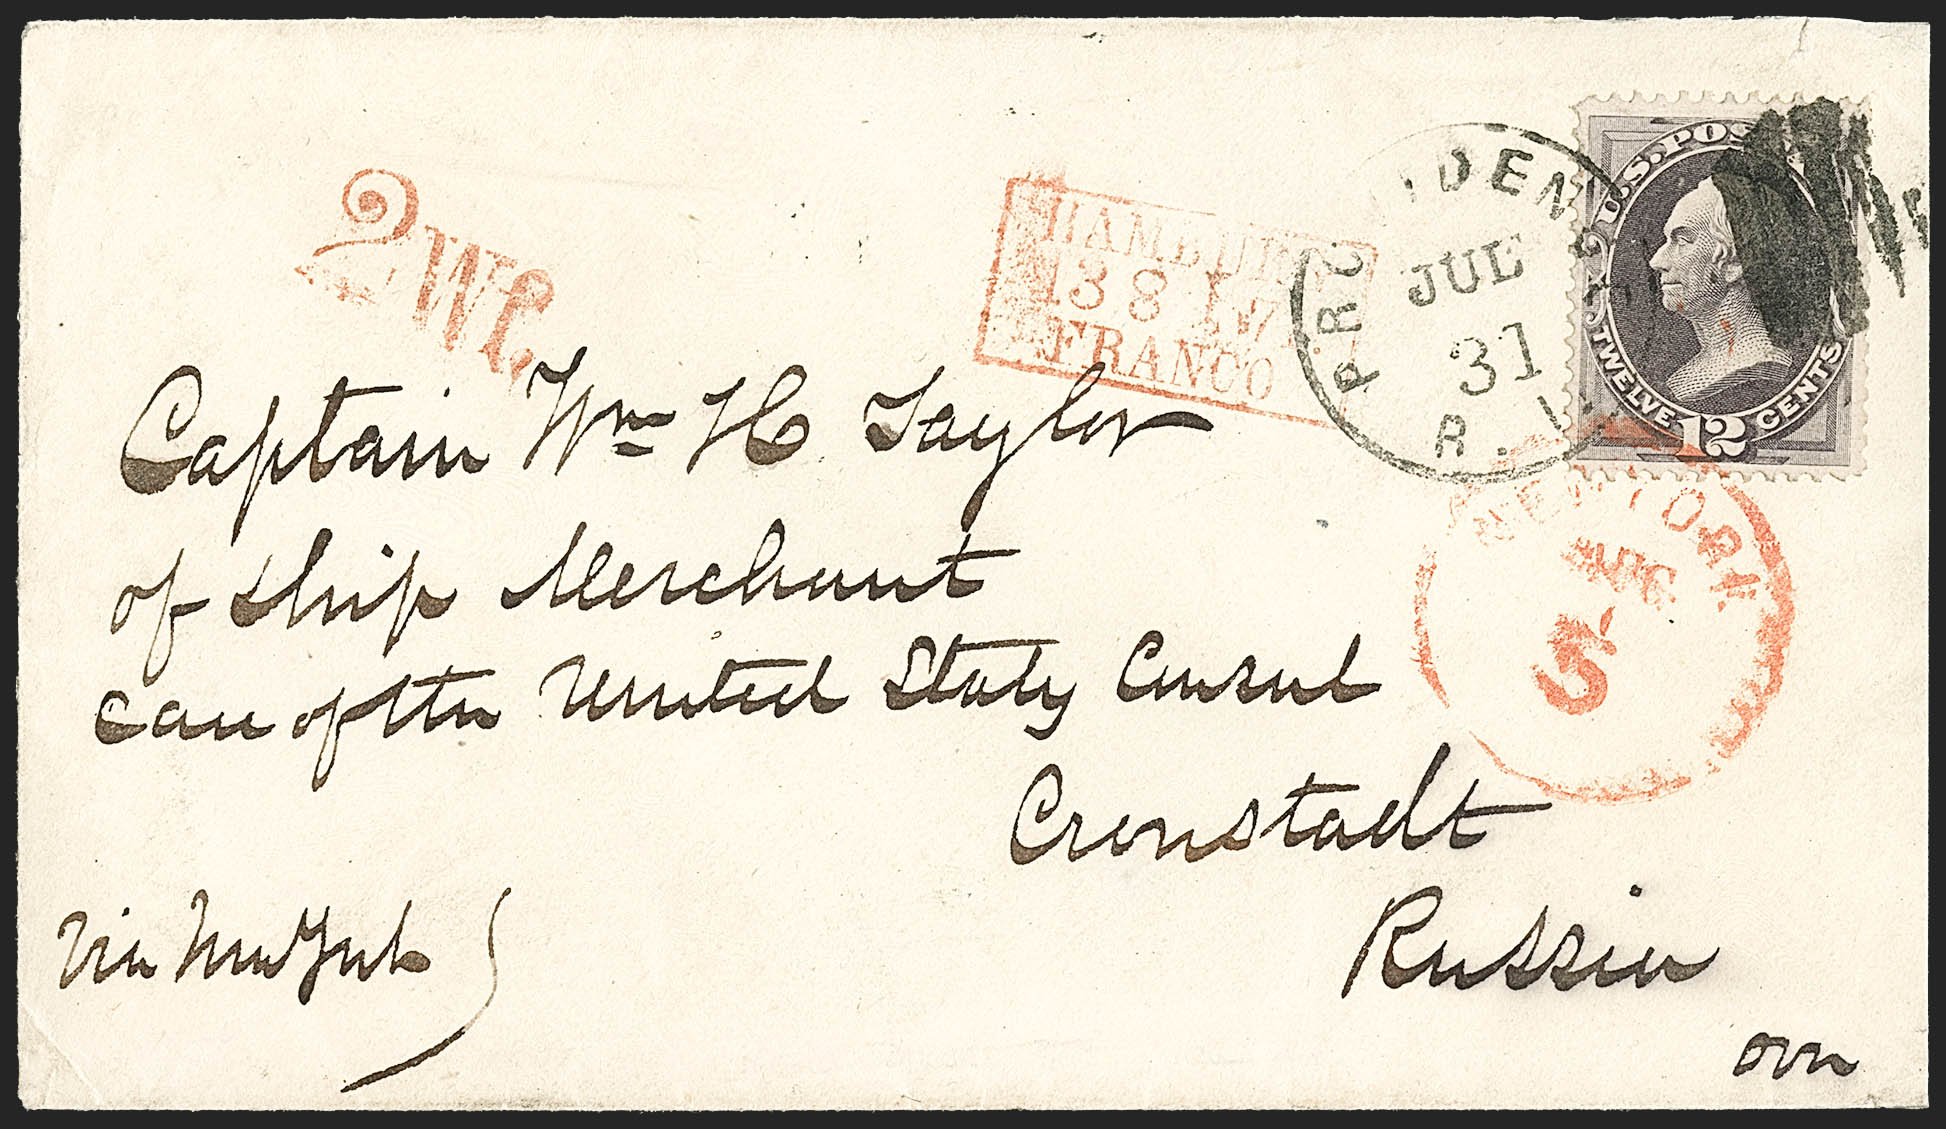 U.S. POS
TWELVE 12 CENTS
PRO IDEN
JUL
31
R. I.
HAMBUR
13 8
FRANCO
2 Wf.
NEW YORK
AUG
5
Captain Wm H Taylor
of Ship Merchant
Care of the United States Consul
Cronstadt
Russia
Via New York
over